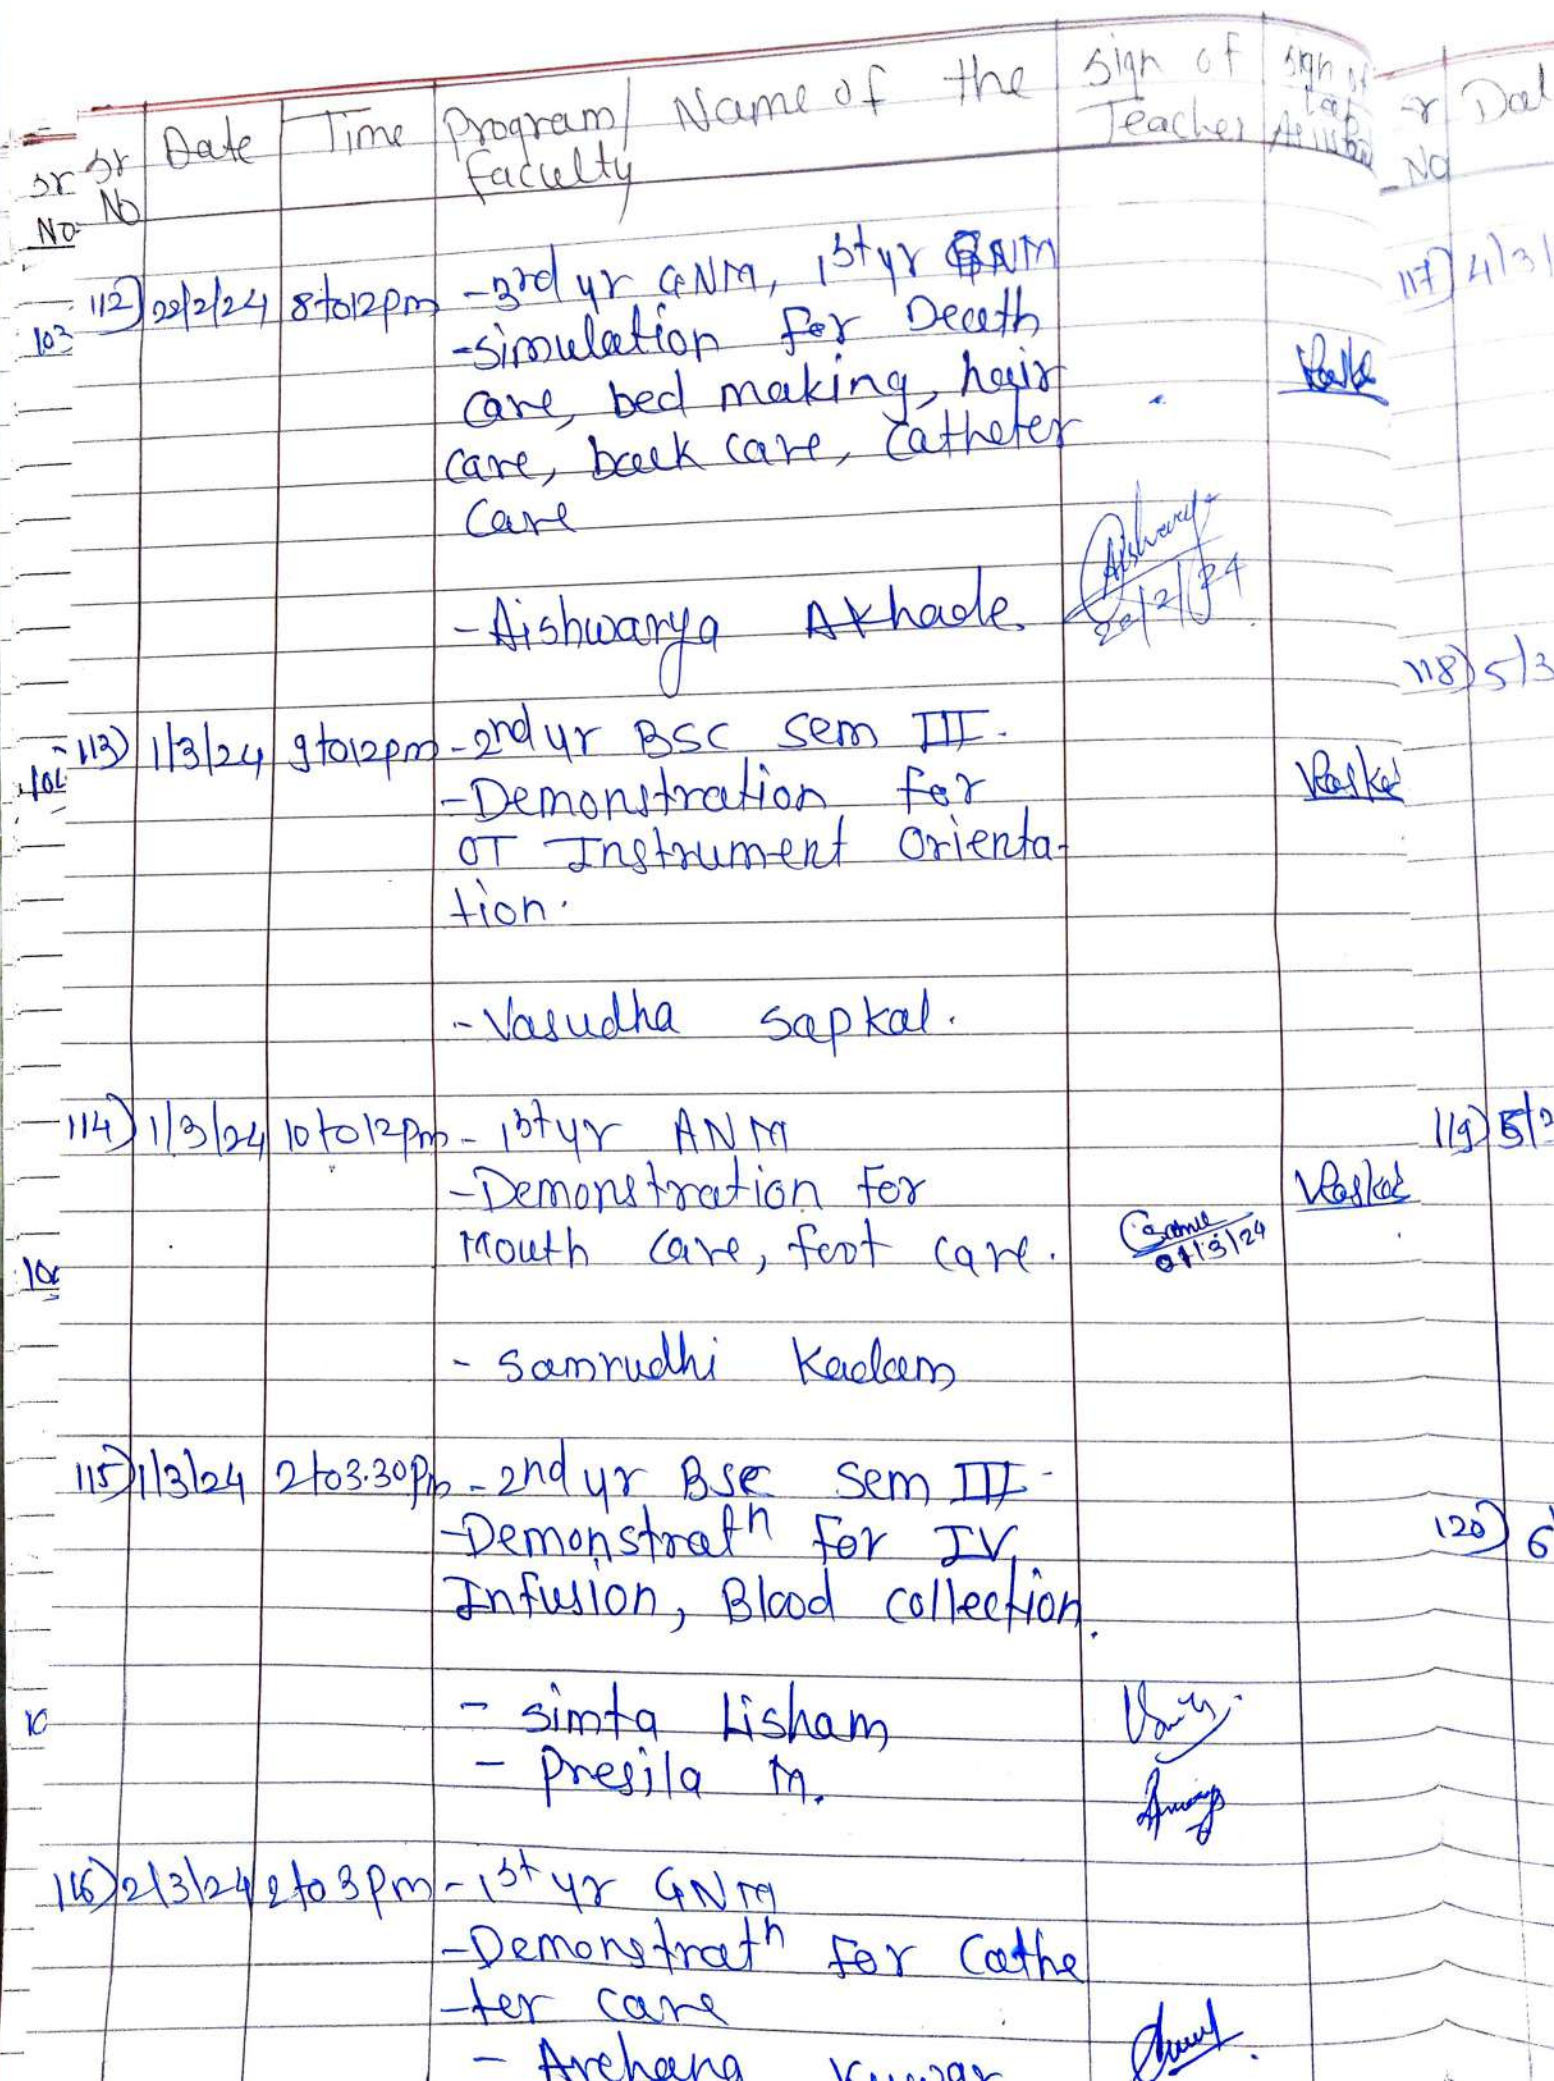 Sr No Date Time Program/ Name of the Faculty Sign of Teacher Sign of Lab
Sr No
112) 28/2/24 8 to 12 pm - 3rd yr GNM, 1st yr GNM
103
- Simulation for Death
care, bed making, hair
care, back care, Catheter
Care
- Aishwarya Akhade.
113) 1/3/24 9 to 12 pm - 2nd yr BSC Sem III.
- Demonstration for
OT Instrument Orienta-
tion.
- Vasudha Sapkal.
114) 1/3/24 10 to 12 Pm - 1st yr ANM
- Demonstration For
Mouth Care, foot care.
01/3/24
- Samrudhi Kadam
115) 1/3/24 2 to 3.30 Pm - 2nd yr BSC Sem III-
- Demonstratn For IV
Infusion, Blood collection.
- Simta Lisham
- Presila M.
116) 2/3/24 2 to 3 Pm - 1st yr GNM
- Demonstratn For Cathe
-ter care
- Archana
r No Dat
117) 4/3/
118) 5/3
119) 5/3
120) 6